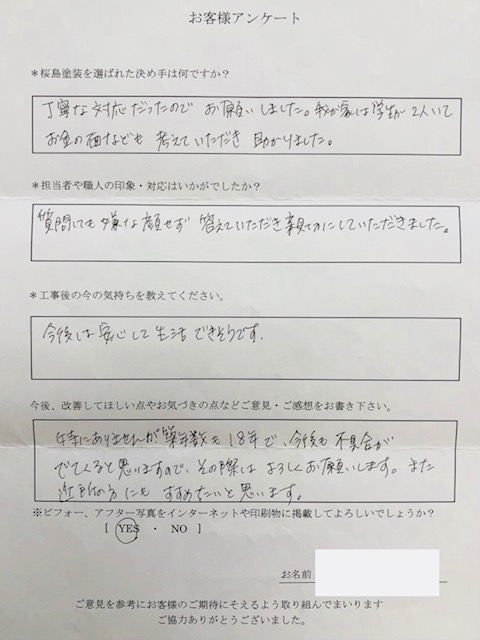 お客様アンケート
＊桜島塗装を選ばれた決め手は何ですか？
丁寧な対応だったので お願いしました。我が家は学生が2人いて
お金の面なども 考えていただき 助かりました。
＊担当者や職人の印象・対応はいかがでしたか？
質問しても 嫌な顔せず 答えていただき 親切にしていただきました。
＊工事後の今の気持ちを教えてください。
今後は安心して生活できそうです.
今後、改善してほしい点やお気づきの点などご意見・ご感想をお書き下さい。
特にありませんが築年数も18年で、今後も不具合が
でてくると思いますので、その際は よろしくお願いします。また
近所の方にも すすめたいと思います。
※ビフォー、アフター写真をインターネットや印刷物に掲載してよろしいでしょうか？
[ YES ・ NO ]
お名前
ご意見を参考にお客様のご期待にそえるよう取り組んでまいります
ご協力ありがとうございました。